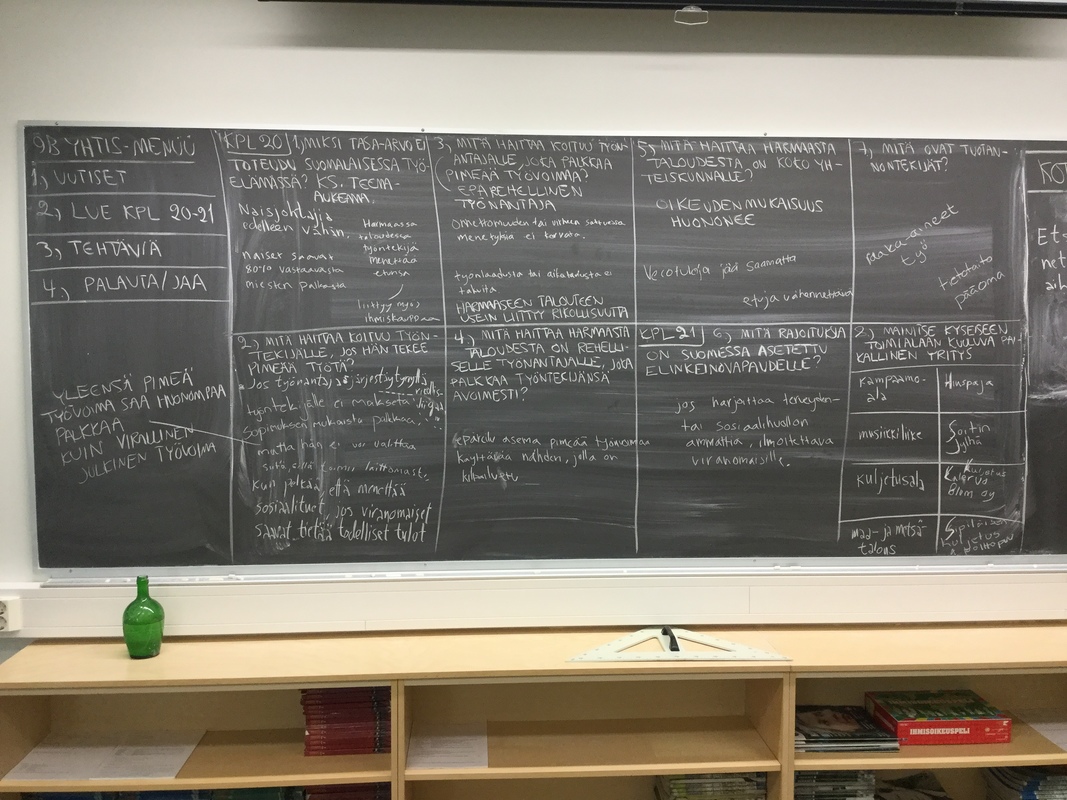 9B YHTIS-MENUU
1, UUTISET
2, LUE KPL 20-21
3, TEHTÄVIÄ
4, PALAUTA/JAA
YLEENSÄ PIMEÄ
TYÖVOIMA SAA HUONOMPAA
PALKKAA
KUIN VIRALLINEN
JULKINEN TYÖVOIMA
KPL 20 1, MIKSI TASA-ARVO EI
TOTEUDU SUOMALAISESSA TYÖ-
ELÄMÄSSÄ? KS. TEEMA-
AUKEAMA.
Naisjohtajia
edelleen vähän.
naiset saavat
80% vastaavasta
miesten palkasta
Harmaassa
taloudessa
työntekijä
menettää
etunsa
liittyy myös
ihmiskauppaa
2, MITÄ HAITTAA KOITUU TYÖN-
TEKIJÄLLE, JOS HÄN TEKEE
PIMEÄÄ TYÖTÄ?
Jos työnantaja järjestäytynyttä
työntekijälle ei makseta
sopimuksen mukaista palkkaa,
mutta hän ei voi valittaa
toimii laittomasti.
kun pelkää että menettää
sosiaalituet, jos viranomaiset
saavat tietää todelliset tulot
3, MITÄ HAITTAA KOITUU TYÖN-
ANTAJALLE, JOKA PALKKAA
PIMEÄÄ TYÖVOIMAA?
EPÄREHELLINEN
TYÖNANTAJA
Onnettomuuden tai virheen sattuessa
menetyksiä ei korvata.
työnlaadusta tai aikataulusta ei
takuita
HARMAASEEN TALOUTEEN
USEIN LIITTYY RIKOLLISUUTTA
4, MITÄ HAITTAA HARMAASTA
TALOUDESTA ON REHELLI-
SELLE TYÖNANTAJALLE, JOKA
PALKKAA TYÖNTEKIJÄNSÄ
AVOIMESTI?
epäreilu asema pimeää työvoimaa
käyttävää nähden, jolla on
5, MITÄ HAITTAA HARMAASTA
TALOUDESTA ON KOKO YH-
TEISKUNNALLE?
OIKEUDENMUKAISUUS
HUONONEE
Verotuloja jää saamatta
etuja vähennettävä
KPL 21 6, MITÄ RAJOITUKSIA
ON SUOMESSA ASETETTU
ELINKEINOVAPAUDELLE?
jos harjoittaa terveyden-
tai sosiaalihuollon
ammattia, ilmoitettava
viranomaisille.
7, MITÄ OVAT TUOTAN-
NONTEKIJÄT?
raaka-aineet
työ
tietotaito
pääoma
2, MAINITSE KYSEISEEN
TOIMIALAAN KUULUVA PAI-
KALLINEN YRITYS
kampaamo-
ala
Hiuspaja
musiikkiliike
Soitin
Sylhä
kuljetusala
Kuljetus
Kalervo
Blom oy
maa- ja metsä-
talous
Sipiläisen
kuljetus
KOT
Et
net
aih
IHMISOIKEUSPELI